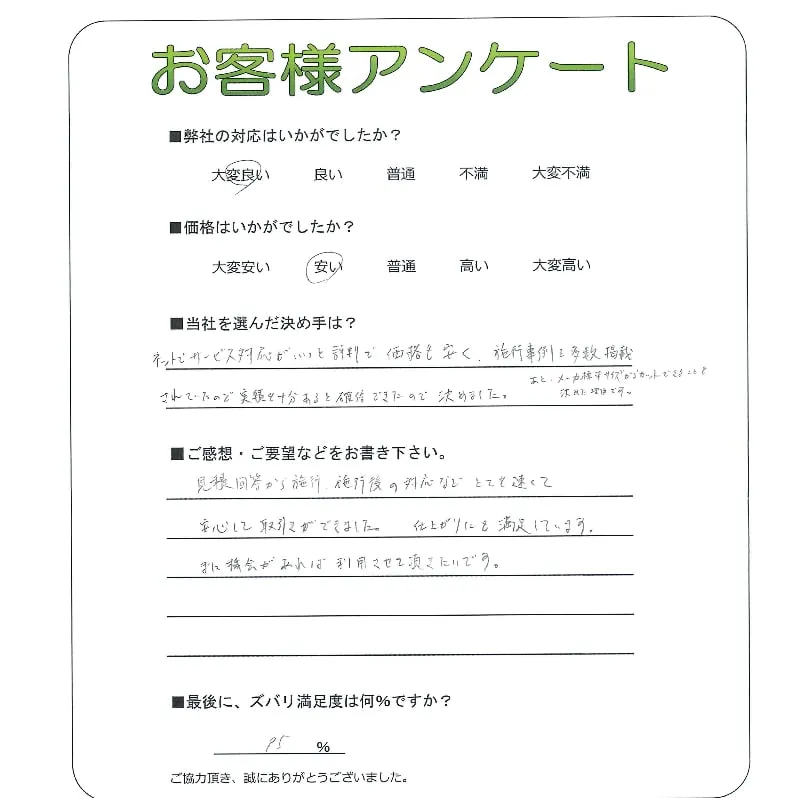 お客様アンケート
■弊社の対応はいかがでしたか？
大変良い 良い 普通 不満 大変不満
■価格はいかがでしたか？
大変安い 安い 普通 高い 大変高い
■当社を選んだ決め手は？
ネットでサービス対応がいいと評判で 価格も安く、施行事例も多数掲載
されていたので実績も十分あると確信できたので決めました。
あと、メーカー様サイズからカットできることも
決めた理由です。
■ご感想・ご要望などをお書き下さい。
見積回答から施行、施行後の対応など とても速くて
安心して取引きができました。 仕上がりにも満足しています。
また機会があれば利用させて頂きたいです。
■最後に、ズバリ満足度は何%ですか？
95 %
ご協力頂き、誠にありがとうございました。